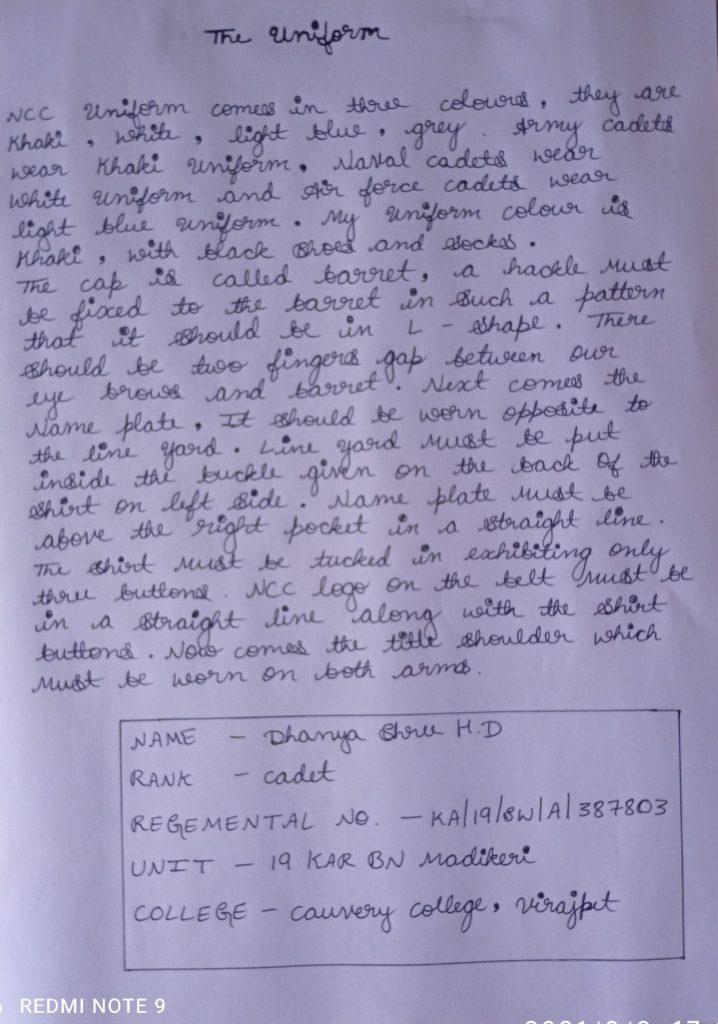 The Uniform
NCC Uniform comes in three colours, they are
Khaki, White, light blue, grey. Army cadets
wear Khaki Uniform, Naval cadets wear
White Uniform and Air force cadets wear
light blue Uniform. My Uniform colour is
Khaki, with black shoes and socks.
The cap is called barret, a hackle must
be fixed to the barret in such a pattern
that it should be in L - shape. There
should be two fingers gap between our
eye brows and barret. Next comes the
Name plate, It should be worn opposite to
the line yard. Line yard must be put
inside the buckle given on the back of the
shirt on left side. Name plate must be
above the right pocket in a straight line.
The shirt must be tucked in exhibiting only
three buttons. NCC logo on the belt must be
in a straight line along with the shirt
buttons. Now comes the title shoulder which
must be worn on both arms.
NAME - Dhanya Shree H.D
RANK - cadet
REGEMENTAL NO. - KA/19/SW/A/387803
UNIT - 19 KAR BN Madikeri
COLLEGE - cauvery college, virajpet
REDMI NOTE 9